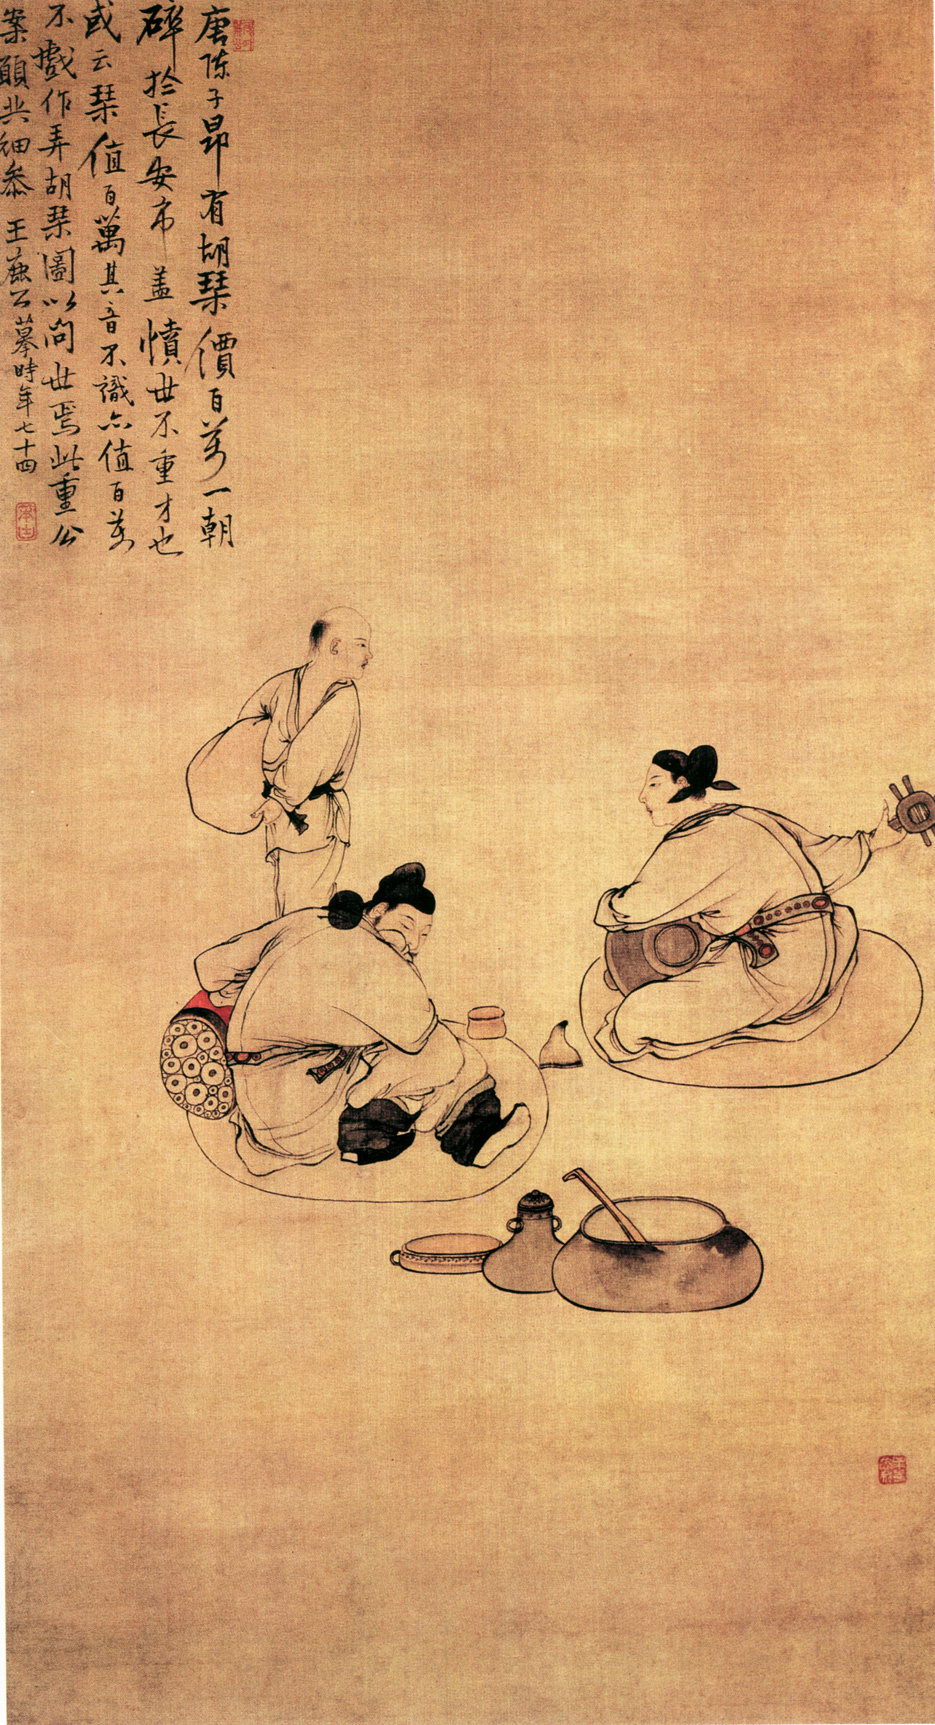 唐陈子昂有胡琹價百萬一朝
碎扵長安市盖憤世不重才也
或云琹值百萬其音不識亦值百萬
不戲作弄胡琹圖以问世焉此重公
案願共细叅 王 公摹時年七十四